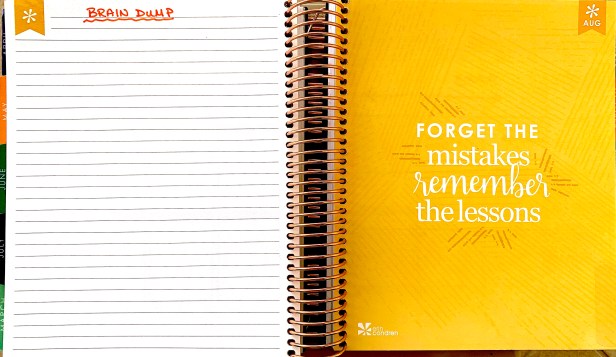 BRAIN DUMP
MAY
JUNE
JULY
AUG
FORGET THE
mistakes
remember
the lessons
erin
condren